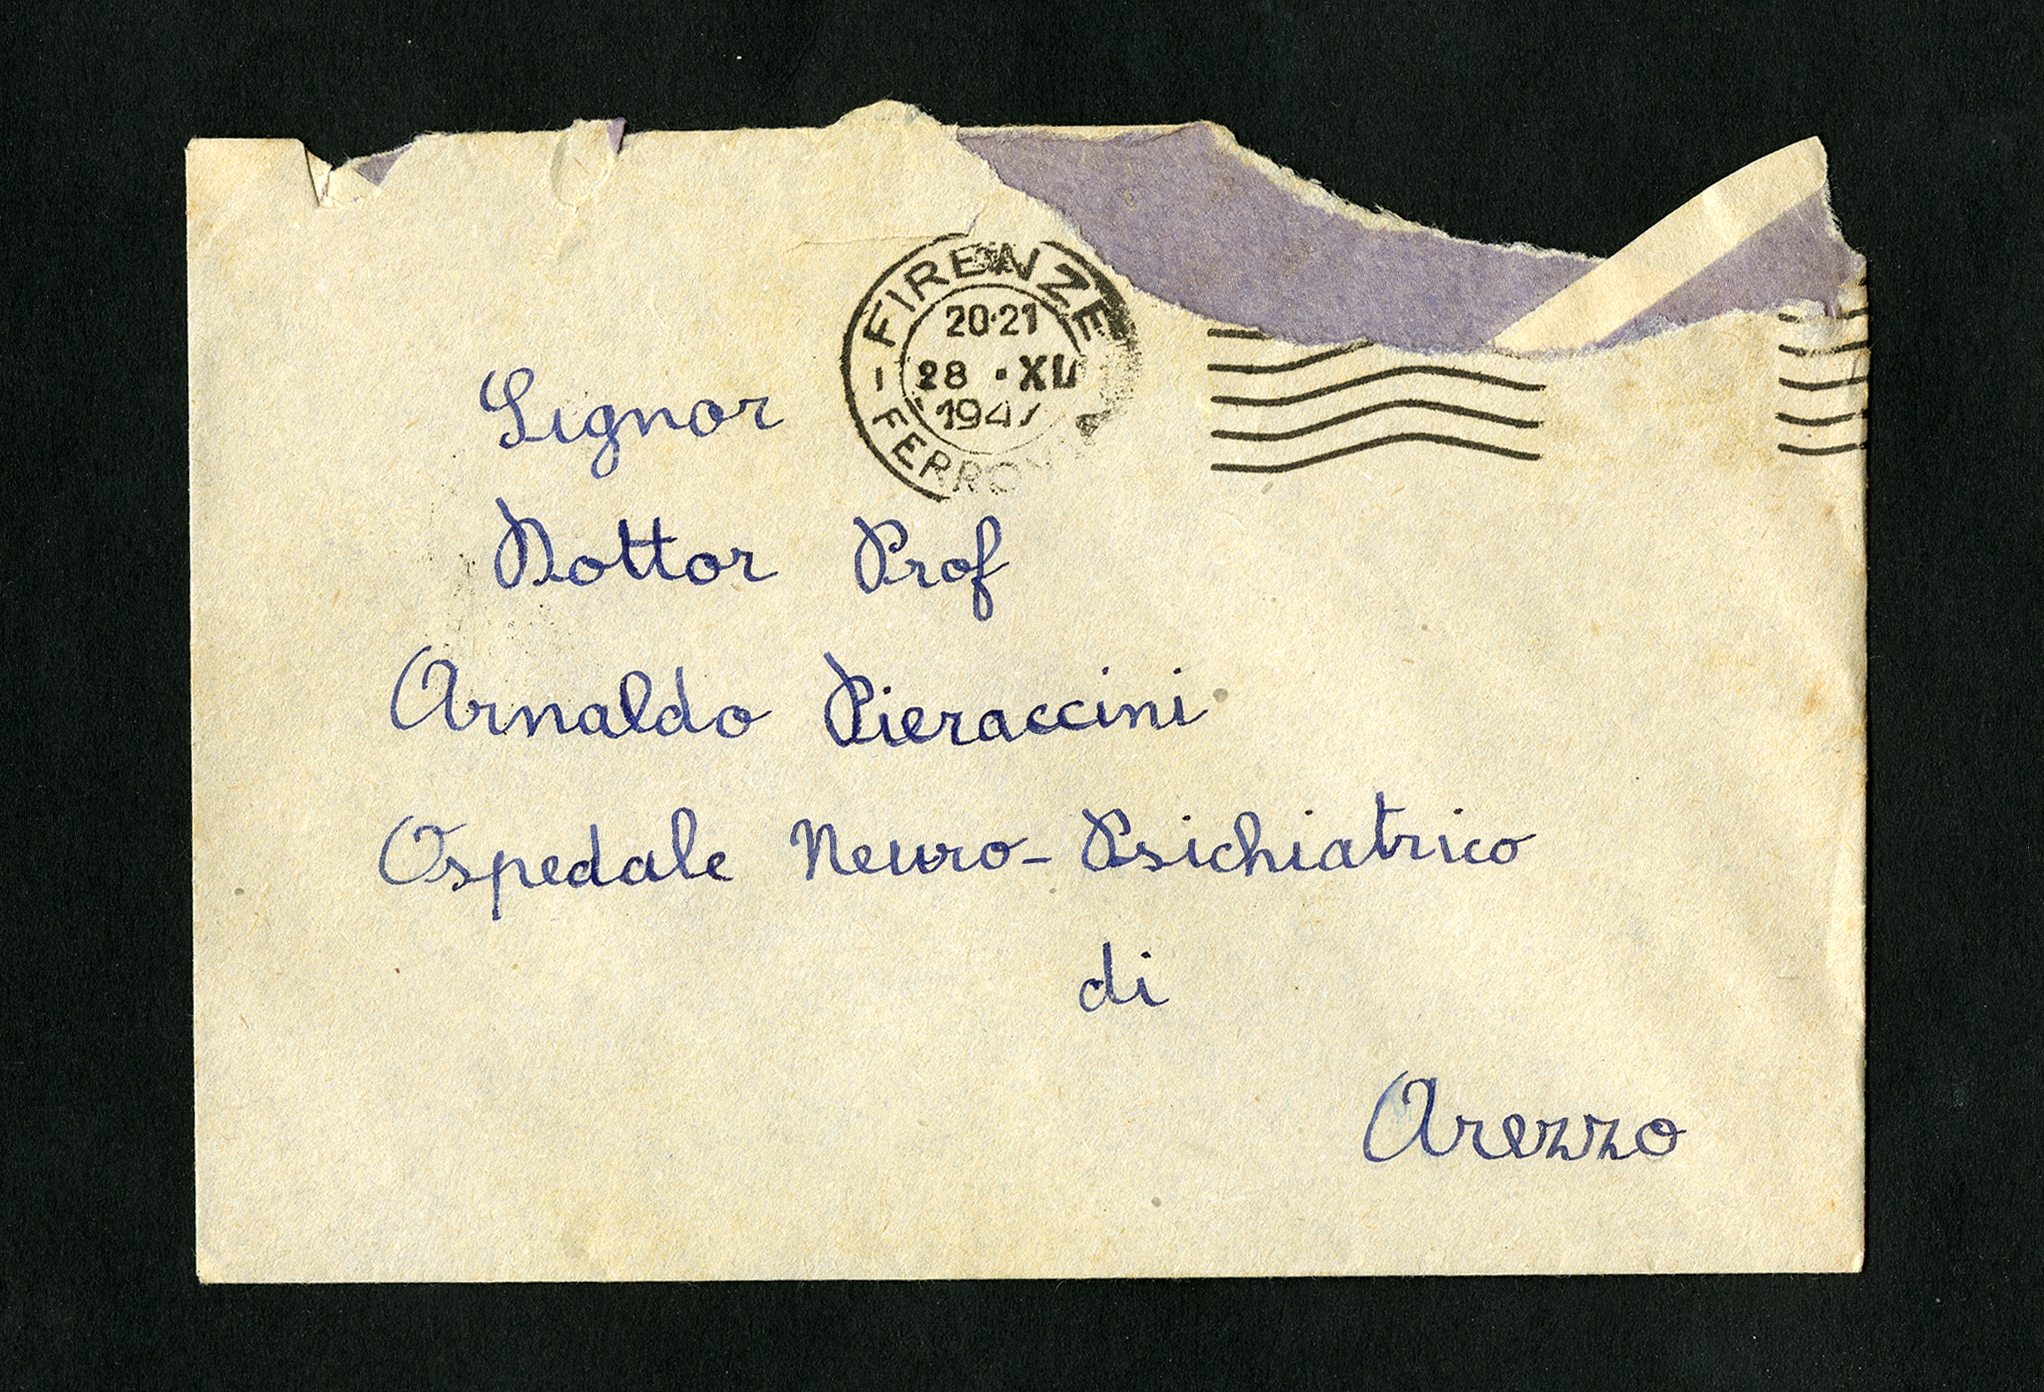 FIRENZE
20·21
28 · XII
FERROVIA
Signor
Dottor Prof
Arnaldo Pieraccini
Ospedale Neuro-Psichiatrico
di
Arezzo